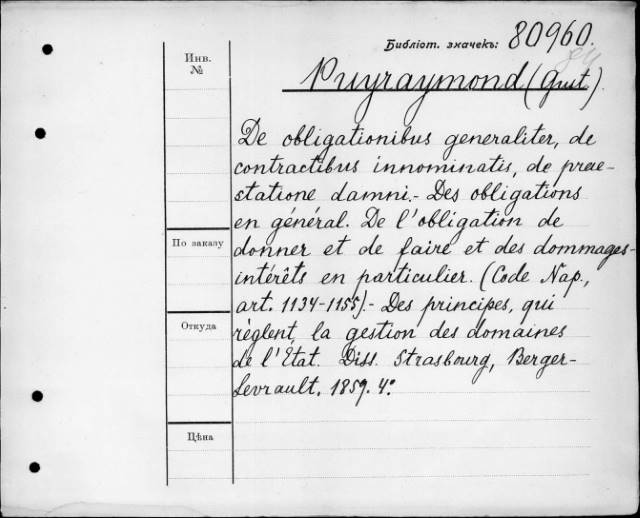 Библіот. значекъ: 80960.
Инв.
№
Puyraymond (Gust.)
De obligationibus generaliter, de
contractibus innominatis, de prae-
statione damni.- Des obligations
en général. De l'obligation de
По заказу
donner et de faire et des dommages-
intérêts en particulier. (Code Nap.,
art. 1134-1155).- Des principes, qui
Откуда
règlent la gestion des domaines
de l'État. Diss. Strasbourg, Berger-
Levrault, 1859. 4°.
Цѣна